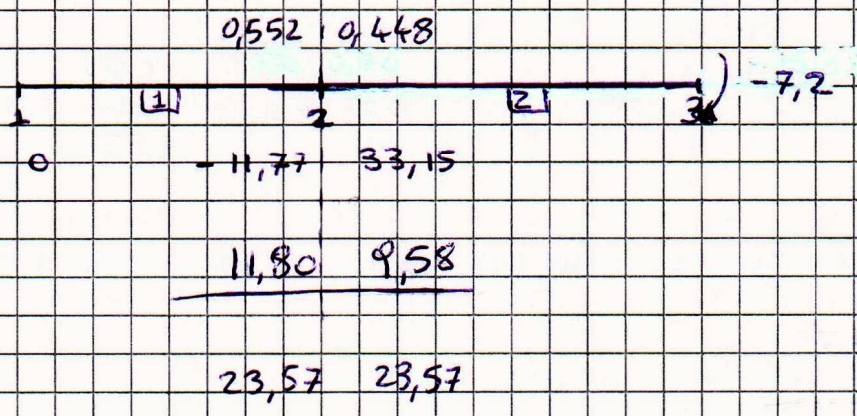 0,552 0,448
1 2 -7,2
1 2 3
0 -11,77 33,15
11,80 9,58
23,57 23,57